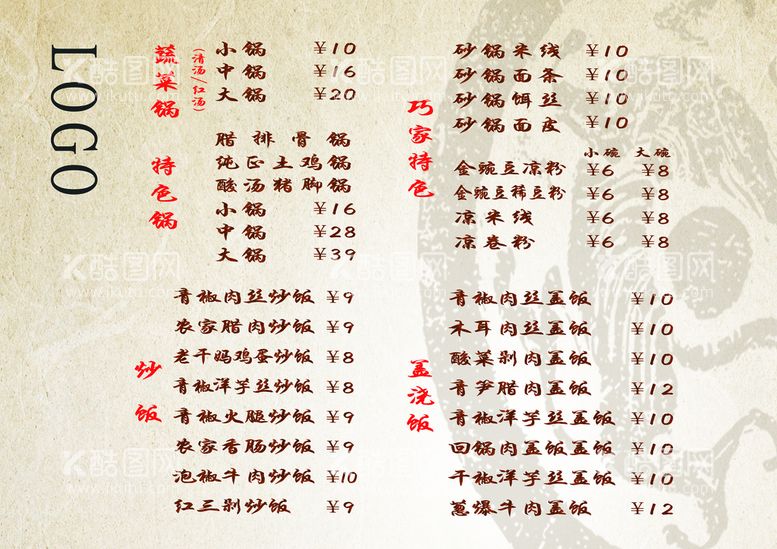 LOGO
蔬菜锅
(清汤/红汤)
小锅 ¥10
中锅 ¥16
大锅 ¥20
特色锅
腊排骨锅
纯正土鸡锅
酸汤猪脚锅
小锅 ¥16
中锅 ¥28
大锅 ¥39
炒饭
青椒肉丝炒饭 ¥9
农家腊肉炒饭 ¥9
老干妈鸡蛋炒饭 ¥8
青椒洋芋丝炒饭 ¥8
青椒火腿炒饭 ¥9
农家香肠炒饭 ¥9
泡椒牛肉炒饭 ¥10
红三剁炒饭 ¥9
巧家特色
砂锅米线 ¥10
砂锅面条 ¥10
砂锅饵丝 ¥10
砂锅面皮 ¥10
小碗 大碗
金豌豆凉粉 ¥6 ¥8
金豌豆稀豆粉 ¥6 ¥8
凉米线 ¥6 ¥8
凉卷粉 ¥6 ¥8
盖浇饭
青椒肉丝盖饭 ¥10
木耳肉丝盖饭 ¥10
酸菜剁肉盖饭 ¥10
青笋腊肉盖饭 ¥12
青椒洋芋丝盖饭 ¥10
回锅肉盖饭盖饭 ¥10
干椒洋芋丝盖饭 ¥10
葱爆牛肉盖饭 ¥12